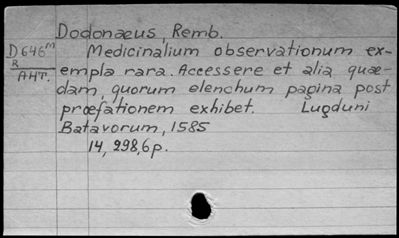 Dodonaeus, Remb.
D646m Medicinalium observationum ex-
R empla rara. Accessere et alia quae-
AHT. dam, quorum elenchum pagina post
præfationem exhibet. Lugduni
Batavorum, 1585
14, 298, 6 p.